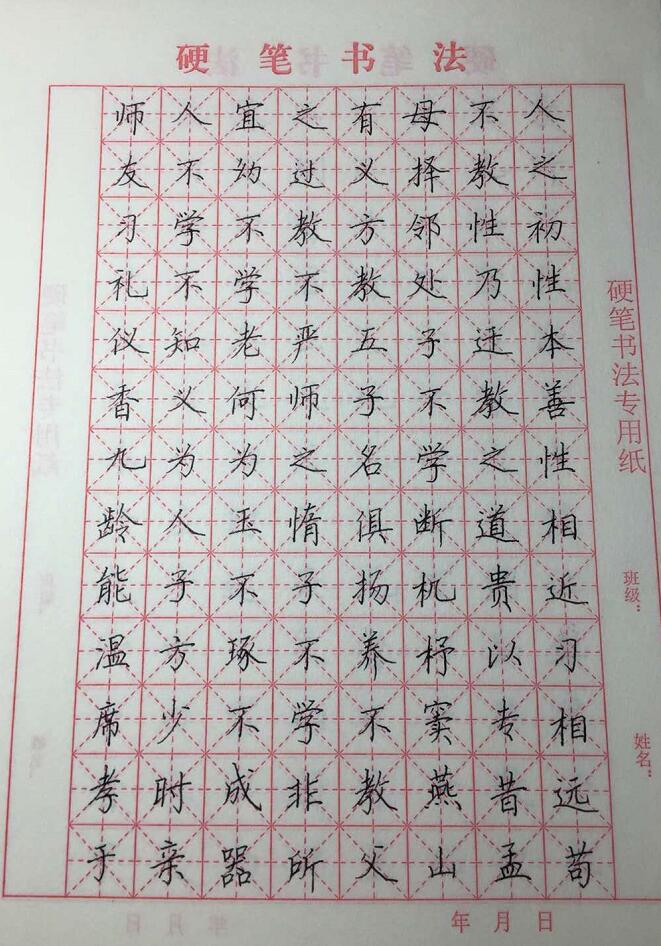 硬笔书法
人之初性本善性相近习相远苟
不教性乃迁教之道贵以专昔孟
母择邻处子不学断机杼窦燕山
有义方教五子名俱扬养不教父
之过教不严师之惰子不学非所
宜幼不学老何为玉不琢不成器
人不学不知义为人子方少时亲
师友习礼仪香九龄能温席孝于
硬笔书法专用纸
班级：
姓名：
年 月 日